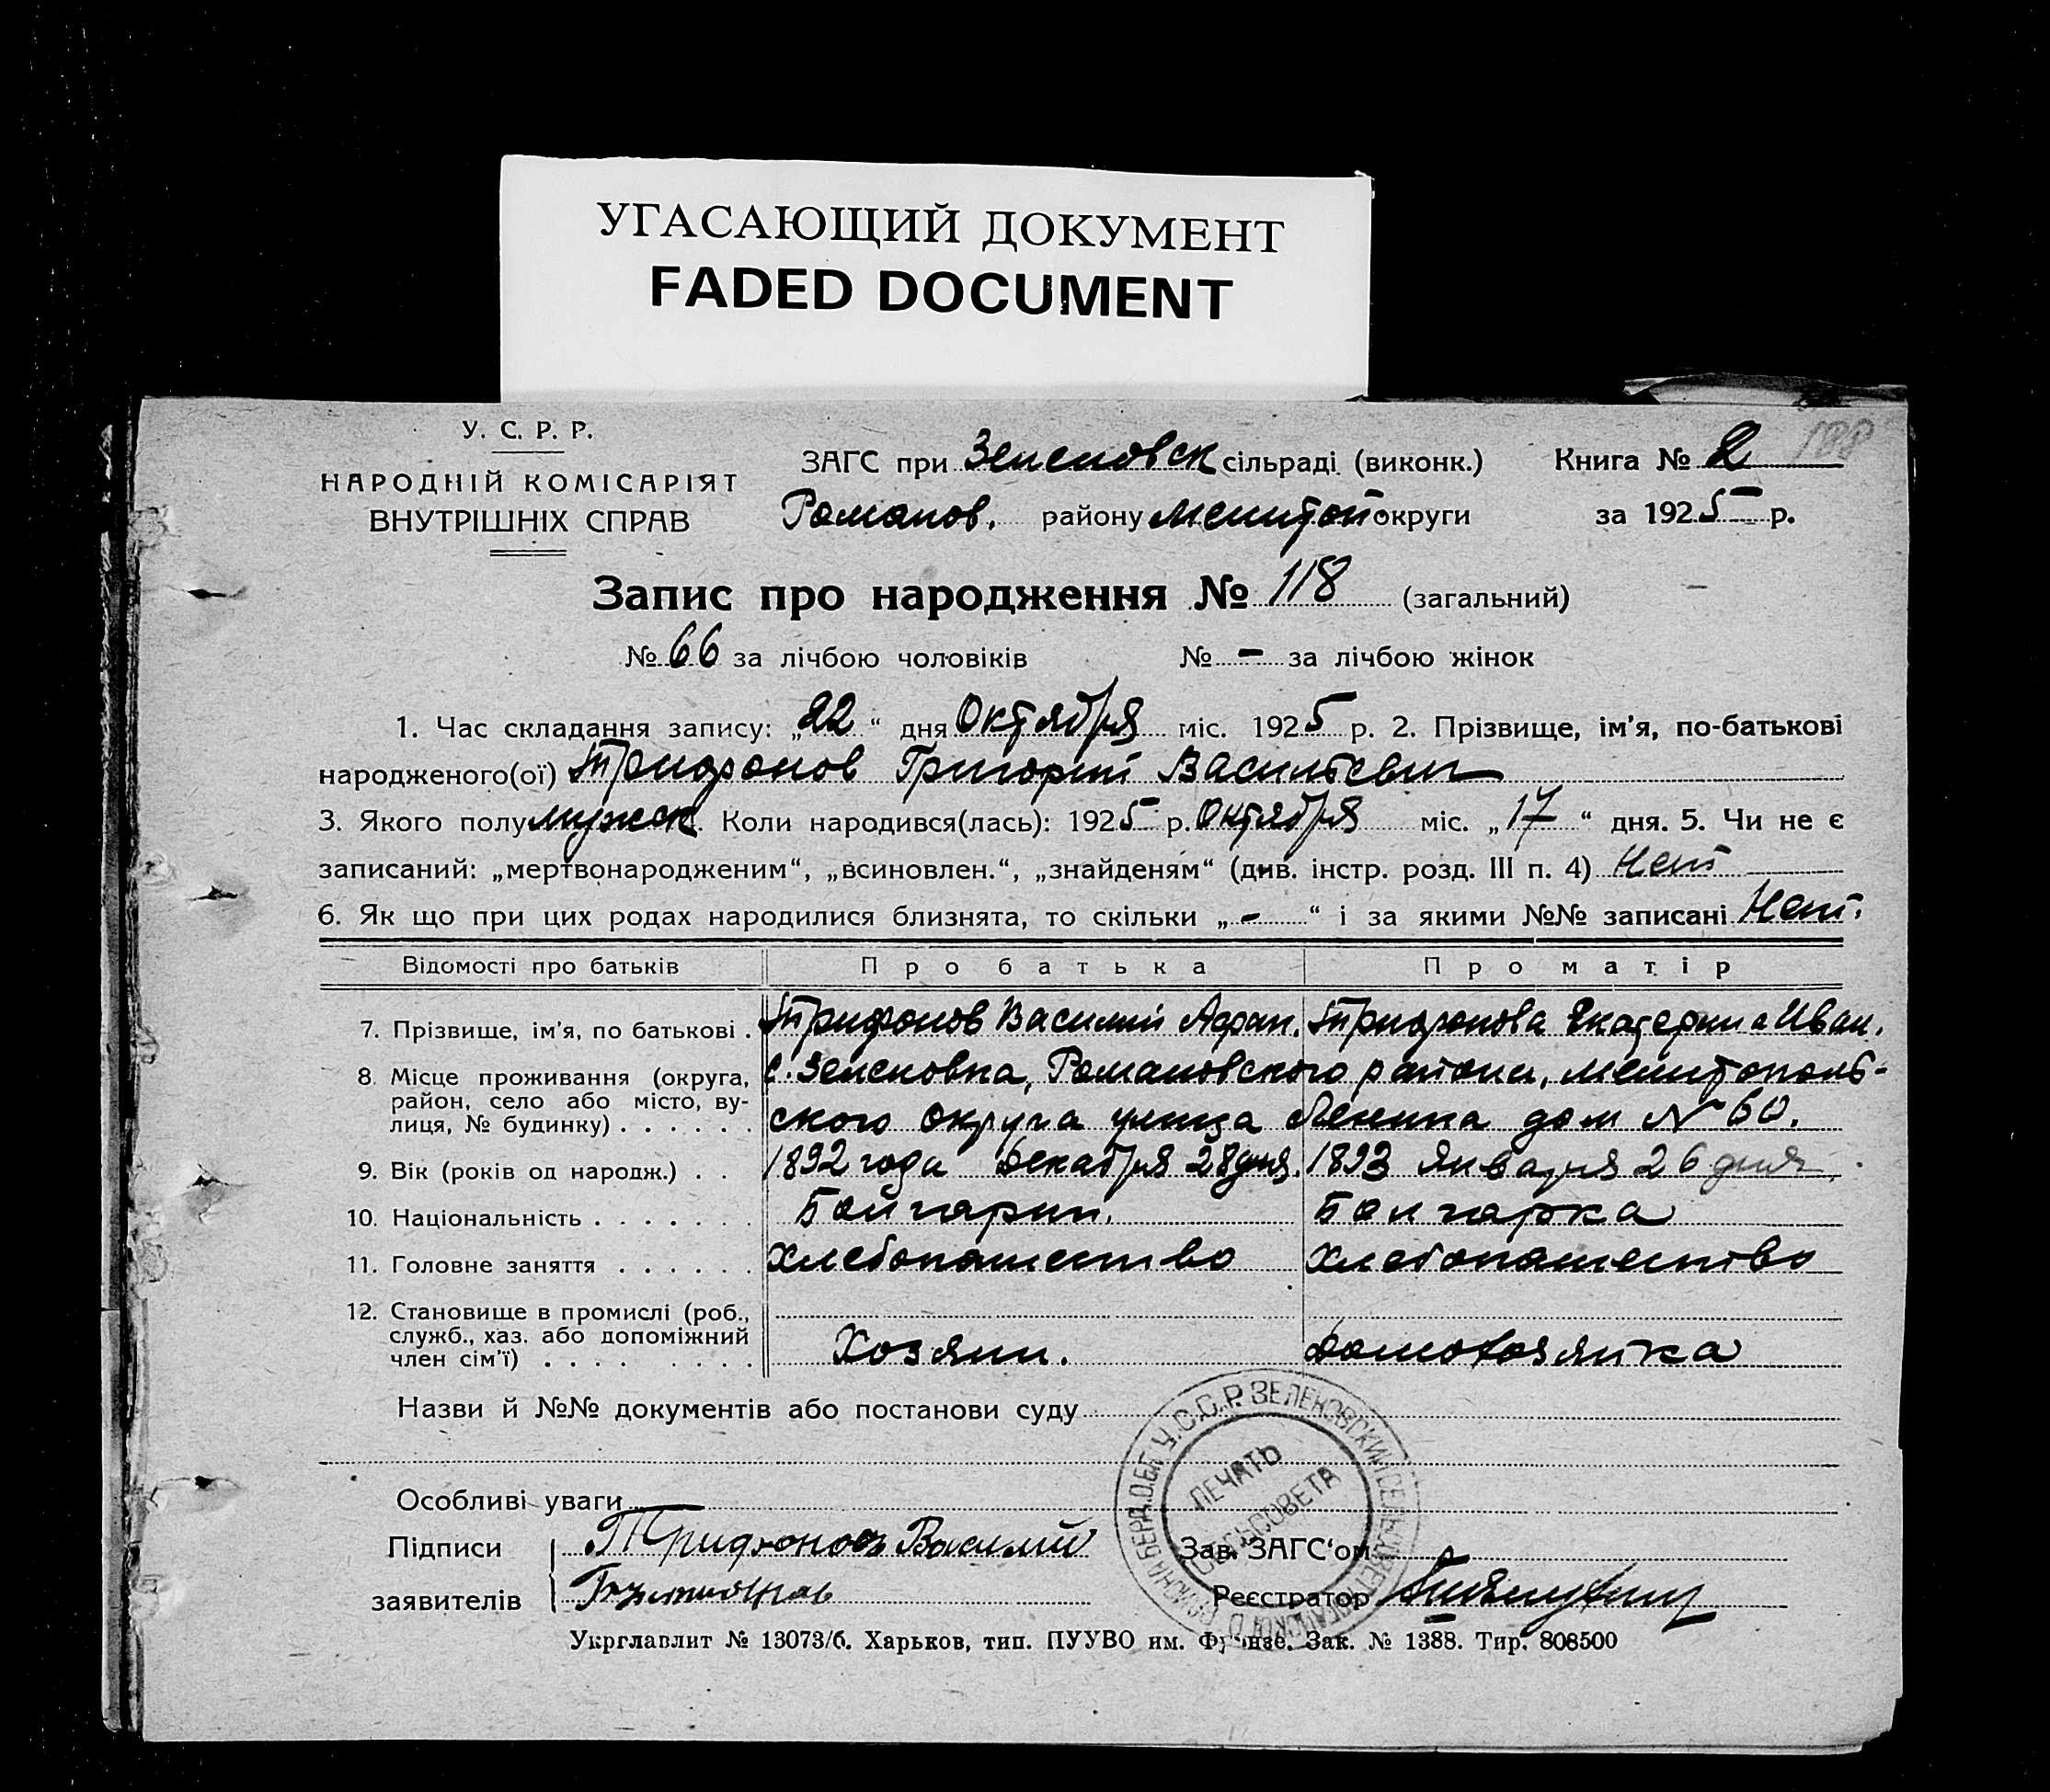 УГАСАЮЩИЙ ДОКУМЕНТ
FADED DOCUMENT
188
У. С. Р. Р.
НАРОДНІЙ КОМІСАРІЯТ
ВНУТРІШНІХ СПРАВ
ЗАГС при Зеленовск сільраді (виконк.)
Романов. району Мелитоп округи
Книга № 2
за 1925 р.
Запис про народження № 118 (загальний)
№ 66 за лічбою чоловіків № - за лічбою жінок
1. Час складання запису: „22“ дня Октября міс. 1925 р. 2. Прізвище, ім’я, по-батькові
народженого(ої) Трифонов Григорий Васильевич
3. Якого полу мужск. Коли народився(лась): 1925 р. Октября міс. „17“ дня. 5. Чи не є
записаний: „мертвонародженим“, „всиновлен.“, „знайденям“ (див. інстр. розд. III п. 4) Нет
6. Як що при цих родах народилися близнята, то скільки „-“ і за якими №№ записані Нет.
Відомості про батьків Про батька Про матір
7. Прізвище, ім’я, по батькові . Трифонов Василий Афан. Трифонова Екатерина Иван.
8. Місце проживання (округа, с. Зеленовка, Романовского района, Мелитополь-
район, село або місто, ву-
лиця, № будинку) . . . . . . ского Округа улица Ленина дом № 60.
9. Вік (років од народж.) . . 1892 года Декабря 28 дня. 1893 Января 26 дня
10. Національність . . . . . . . Болгарин. Болгарка
11. Головне заняття . . . . . . Хлебопашество Хлебопашество
12. Становище в промислі (роб.,
служб., хаз. або допоміжний
член сім’ї) . . . . . . . . Хозяин. Домохозяйка
Назви й №№ документів або постанови суду
Особливі уваги
Підписи Трифонов Василий Зав. ЗАГС‘ом
заявителів Реєстратор
У.С.С.Р. ЗЕЛЕНОВСКИЙ
ПЕЧАТЬ
СЕЛЬСОВЕТА
Укрглавлит № 13073/б. Харьков, тип. ПУУВО им. Фрунзе. Зак. № 1388. Тир. 808500